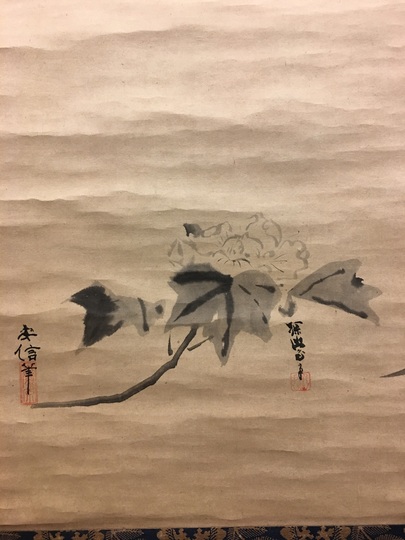 探幽斎筆
安信筆